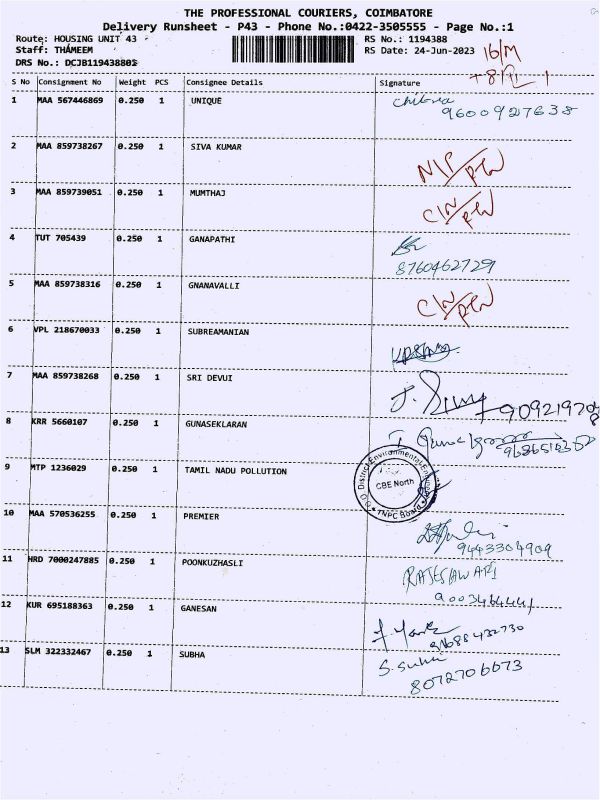 THE PROFESSIONAL COURIERS, COIMBATORE
Delivery Runsheet - P43 - Phone No.:0422-3505555 - Page No.:1
Route: HOUSING UNIT 43 RS No.: 1194388
Staff: THAMEEM RS Date: 24-Jun-2023 16/M
DRS No.: DCJB119438801
S No Consignment No Weight PCS Consignee Details Signature
1 MAA 567446869 0.250 1 UNIQUE Chitra
9600927638
2 MAA 859738267 0.250 1 SIVA KUMAR
3 MAA 859739051 0.250 1 MUMTHAJ
4 TUT 705439 0.250 1 GANAPATHI
8760462729
5 MAA 859738316 0.250 1 GNANAVALLI
6 VPL 218670033 0.250 1 SUBREAMANIAN
7 MAA 859738268 0.250 1 SRI DEVUI
8 KRR 5660107 0.250 1 GUNASEKLARAN
9 MTP 1236029 0.250 1 TAMIL NADU POLLUTION CBE North
10 MAA 570536255 0.250 1 PREMIER
9443304909
11 HRD 7000247885 0.250 1 POONKUZHASLI RAJESWARI
9003464441
12 KUR 695188363 0.250 1 GANESAN
13 SLM 322332467 0.250 1 SUBHA S. Subha
8072706673